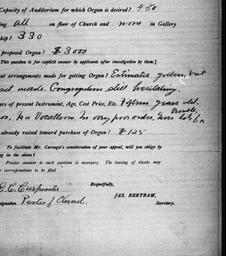 Capacity of Auditorium for which Organ is desired? 450
ing all on floor of Church and none in Gallery
330
proposed Organ? $3000
This question is for explicit answer by applicants after investigation by them.]
at arrangements made for getting Organ? Estimates given, but
made. Congregation still hesitating.
rs of present Instrument, Age, Cost Price, Etc. Fifteen years old.
Vocalion. In very poor order.
already raised toward purchase of Organ? $125
To facilitate Mr. Carnegie's consideration of your appeal, will you oblige by
ng in the above?
Precise answer to each question is necessary. The leaving of blanks may
r correspondence to no find
Respectfully,
E. C. Carpenter
JAS. BERTRAM,
signation Pastor of Church
Secretary.